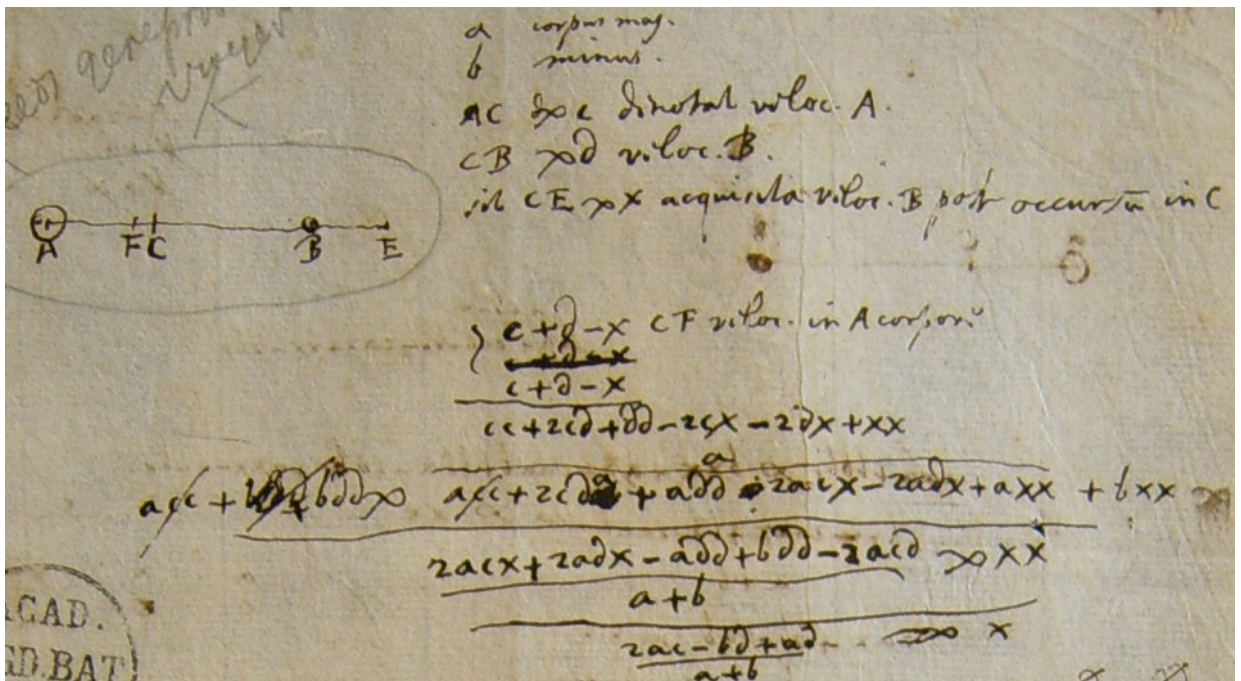 a corpus maj.
b minus.
AC ∞ c denotat veloc. A.
CB ∞ d veloc. B.
sit CE ∞ x acquisita veloc. B post occursū in C
A F C B E
c+d-x CF veloc. in A corpore
c+d-x
c+d-x
cc+2cd+dd-2cx-2dx+xx
a
acc + bdd ∞ acc+2cda+add-2acx-2adx+axx + bxx
2acx+2adx-add+bdd-2acd ∞ xx
a+b
2ac-bd+ad ∞ x
a+b
ACAD.
GD.BAT